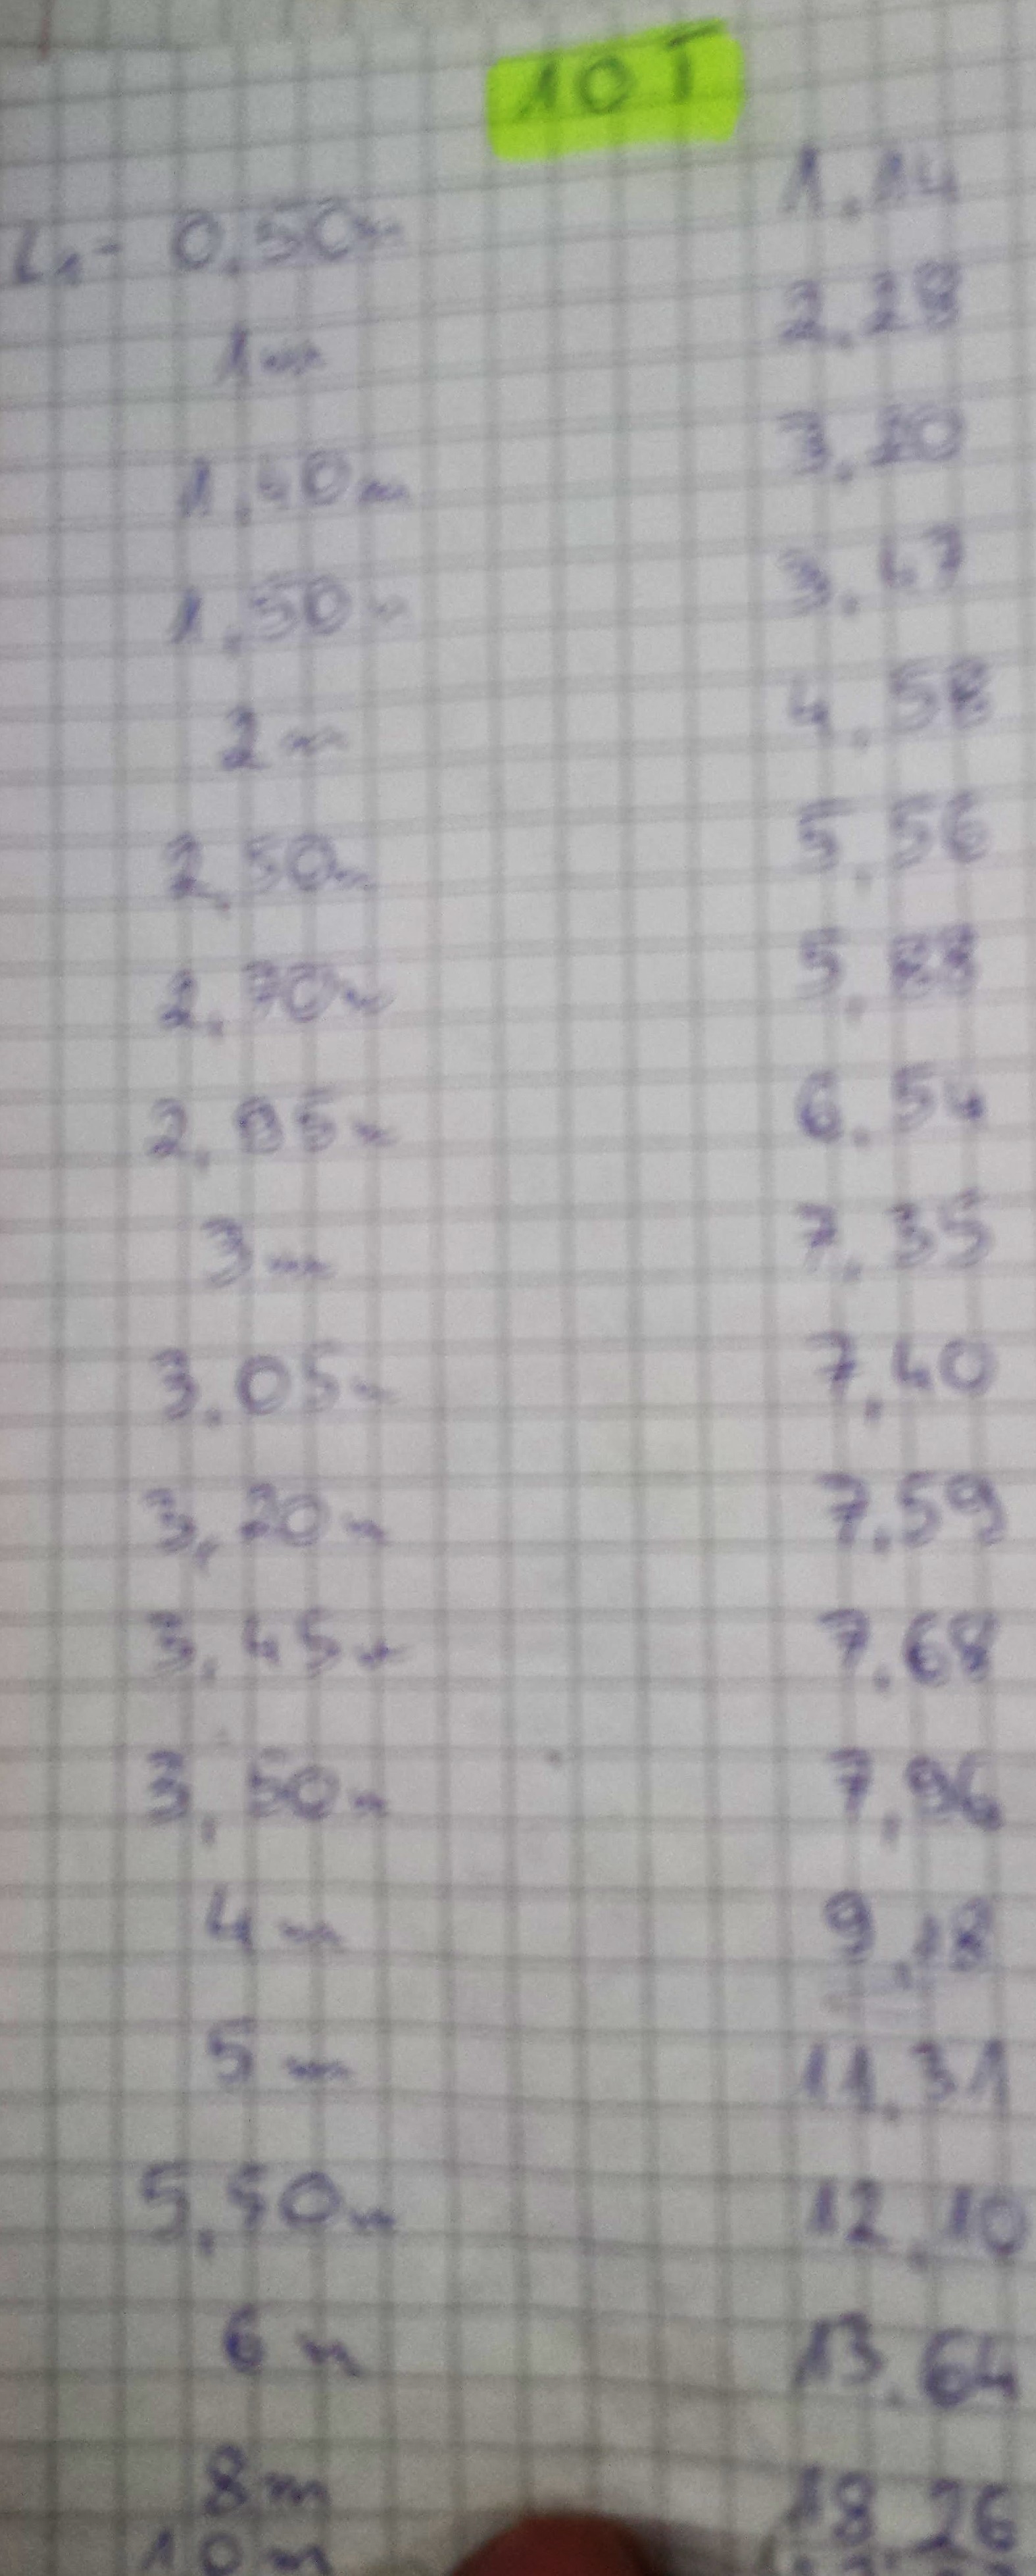 10 T
L1 - 0,50m 1,14
1m 2,28
1,40m 3,20
1,50m 3,47
2m 4,58
2,50m 5,56
2,70m 5,88
2,85m 6,54
3m 7,35
3,05m 7,40
3,20m 7,59
3,45m 7,68
3,50m 7,96
4m 9,18
5m 11,31
5,50m 12,10
6m 13,64
8m 18,26
10m